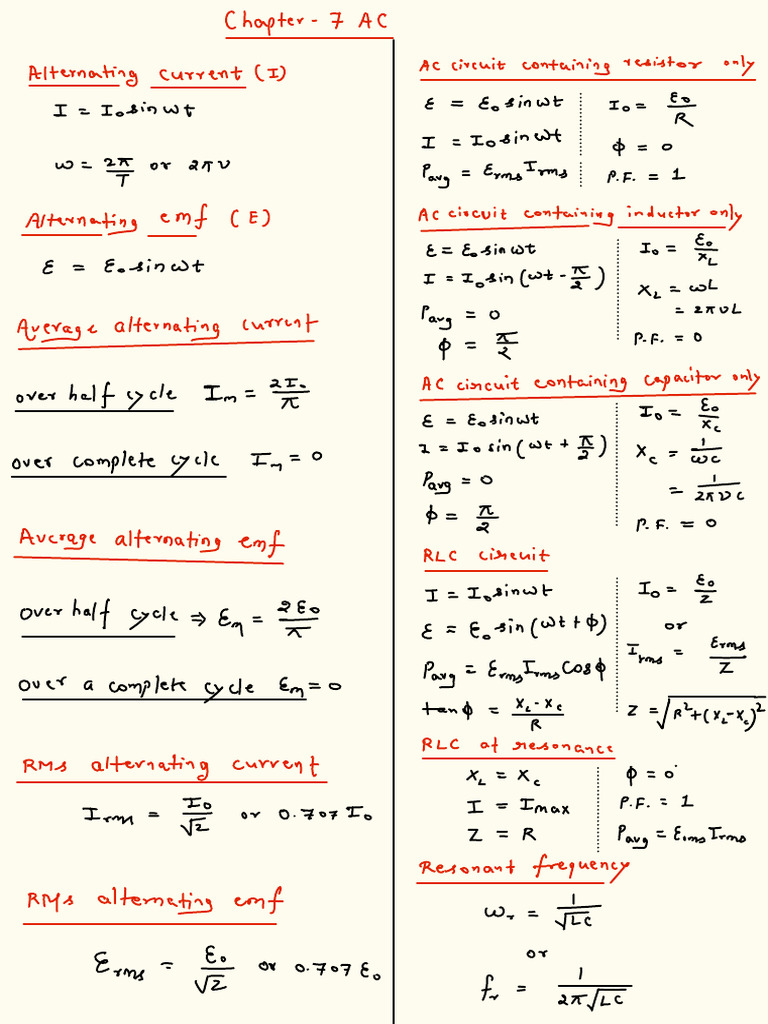 Chapter - 7 AC
Alternating current (I)
I = I₀ sin ωt
ω = 2π/T or 2πν
Alternating emf (E)
ε = ε₀ sin ωt
Average alternating current
over half cycle Iₘ = 2I₀/π
over complete cycle Iₘ = 0
Average alternating emf
over half cycle ⇒ εₘ = 2ε₀/π
over a complete cycle εₘ = 0
RMS alternating current
Iᵣₘₛ = I₀/√2 or 0.707 I₀
RMS alternating emf
εᵣₘₛ = ε₀/√2 or 0.707 ε₀
AC circuit containing resistor only
ε = ε₀ sin ωt
I = I₀ sin ωt
P_avg = εᵣₘₛ Iᵣₘₛ
I₀ = ε₀/R
ϕ = 0
P.F. = 1
AC circuit containing inductor only
ε = ε₀ sin ωt
I = I₀ sin (ωt - π/2)
P_avg = 0
ϕ = π/2
I₀ = ε₀/X_L
X_L = ωL
= 2πνL
P.F. = 0
AC circuit containing capacitor only
ε = ε₀ sin ωt
I = I₀ sin (ωt + π/2)
P_avg = 0
ϕ = π/2
I₀ = ε₀/X_c
X_c = 1/ωc
= 1/2πνc
P.F. = 0
RLC circuit
I = I₀ sin ωt
ε = ε₀ sin (ωt + ϕ)
P_avg = εᵣₘₛ Iᵣₘₛ Cosϕ
tanϕ = (X_L - X_c)/R
I₀ = ε₀/Z
or
Iᵣₘₛ = εᵣₘₛ/Z
Z = √(R² + (X_L - X_c)²)
RLC at resonance
X_L = X_c
I = Imax
Z = R
ϕ = 0
P.F. = 1
P_avg = εᵣₘₛ Iᵣₘₛ
Resonant frequency
ωᵣ = 1/√LC
or
fᵣ = 1/2π√LC